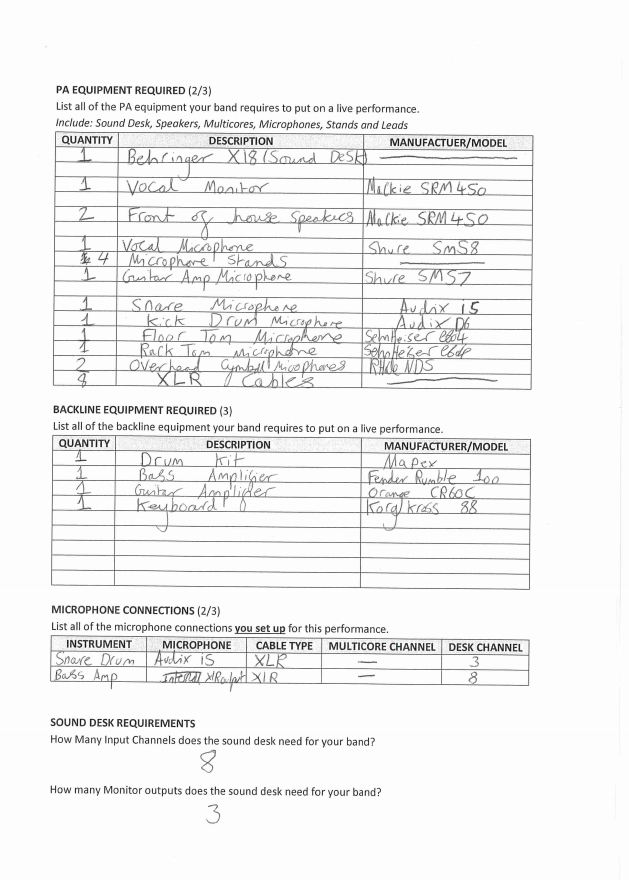 PA EQUIPMENT REQUIRED (2/3)
List all of the PA equipment your band requires to put on a live performance.
Include: Sound Desk, Speakers, Multicores, Microphones, Stands and Leads
QUANTITY DESCRIPTION MANUFACTUER/MODEL
1 Behringer X18 (Sound Desk)
1 Vocal Monitor Mackie SRM450
2 Front of house Speakers Mackie SRM450
1 Vocal Microphone Shure Sm58
4 Microphone Stands
1 Guitar Amp Microphone Shure SM57
1 Snare Microphone Audix i5
1 Kick Drum Microphone Audix D6
1 Floor Tom Microphone e604
1 Rack Tom Microphone
2 Overhead Microphones ND5
8 XLR Cables
BACKLINE EQUIPMENT REQUIRED (3)
List all of the backline equipment your band requires to put on a live performance.
QUANTITY DESCRIPTION MANUFACTURER/MODEL
1 Drum Kit Mapex
1 Bass Amplifier Fender Rumble 100
1 Guitar Amplifier Orange CR60C
1 Keyboard Korg kross 88
MICROPHONE CONNECTIONS (2/3)
List all of the microphone connections you set up for this performance.
INSTRUMENT MICROPHONE CABLE TYPE MULTICORE CHANNEL DESK CHANNEL
Snare Drum Audix i5 XLR — 3
Bass Amp XLR — 8
SOUND DESK REQUIREMENTS
How Many Input Channels does the sound desk need for your band?
8
How many Monitor outputs does the sound desk need for your band?
3